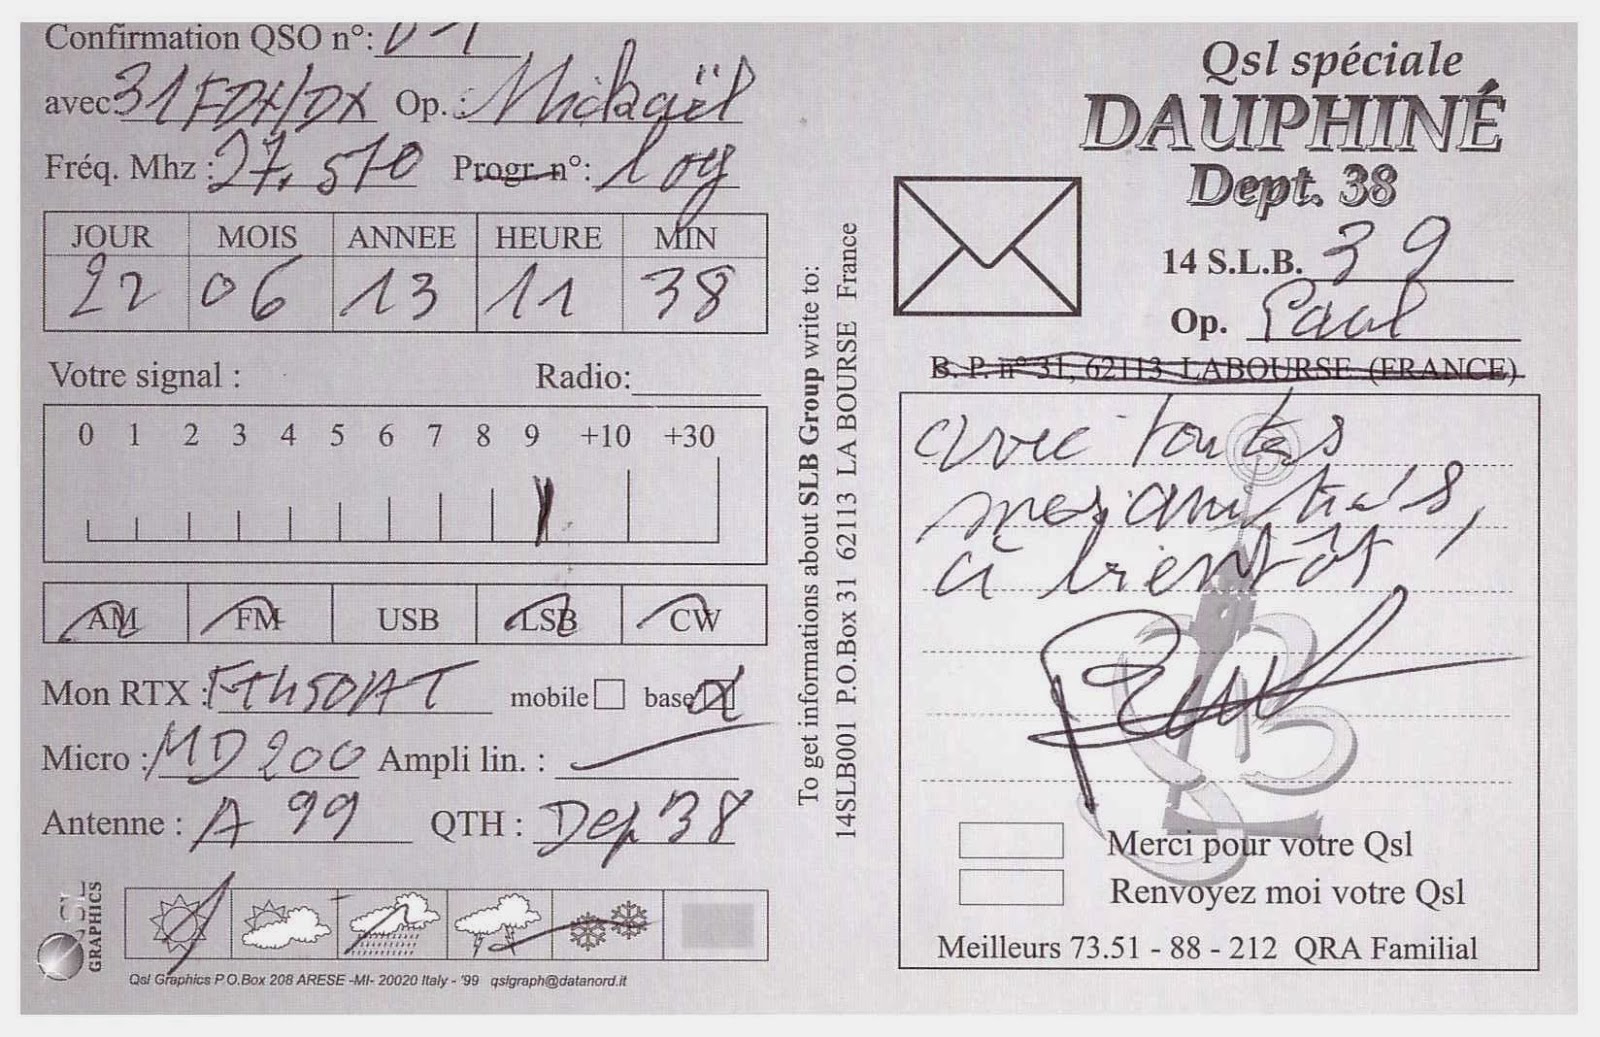 Confirmation QSO n°:
avec 31 FDX/DX Op. : Mickaël
Fréq. Mhz : 27,570 Progr. n°: log
JOUR MOIS ANNEE HEURE MIN
22 06 13 11 38
Votre signal : Radio:
0 1 2 3 4 5 6 7 8 9 +10 +30
AM FM USB LSB CW
Mon RTX : mobile base
Micro : MD 200 Ampli lin. :
Antenne : A 99 QTH : Dep 38
QSL GRAPHICS
Qsl Graphics P.O.Box 208 ARESE -MI- 20020 Italy - '99 qslgraph@datanord.it
To get informations about SLB Group write to:
14SLB001 P.O.Box 31 62113 LA BOURSE France
Qsl spéciale
DAUPHINÉ
Dept. 38
14 S.L.B. 39
Op. Paul
B. P. n° 31, 62113 LABOURSE (FRANCE)
avec toutes
mes amitiés,
à bientôt
Paul
Merci pour votre Qsl
Renvoyez moi votre Qsl
Meilleurs 73.51 - 88 - 212 QRA Familial